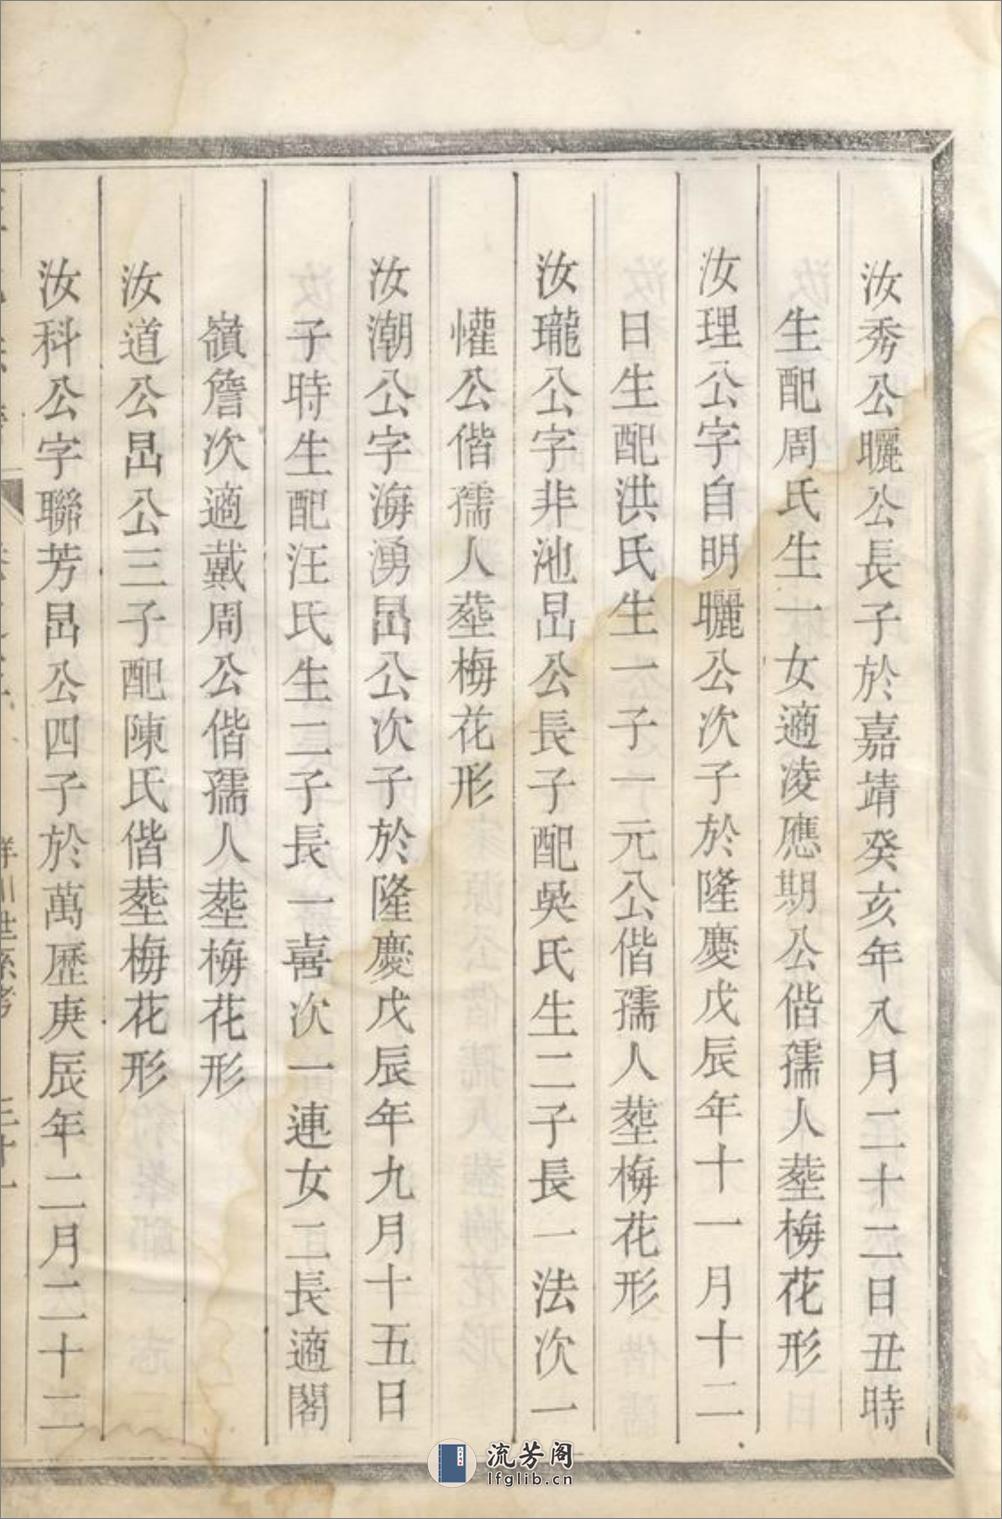 汝秀公曬公長子於嘉靖癸亥年八月二十二日丑時
生配周氏生一女適凌應期公偕孺人塟梅花形
汝理公字自明曬公次子於隆慶戊辰年十一月十二
日生配洪氏生一子一元公偕孺人塟梅花形
汝瓏公字非池昷公長子配吳氏生二子長一法次一
懽公偕孺人塟梅花形
汝潮公字海湧昷公次子於隆慶戊辰年九月十五日
子時生配汪氏生二子長一喜次一連女二長適閣
嶺詹次適戴周公偕孺人塟梅花形
汝道公昷公三子配陳氏偕塟梅花形
汝科公字聯芳昷公四子於萬歷庚辰年二月二十二
流芳阁
lfglib.cn